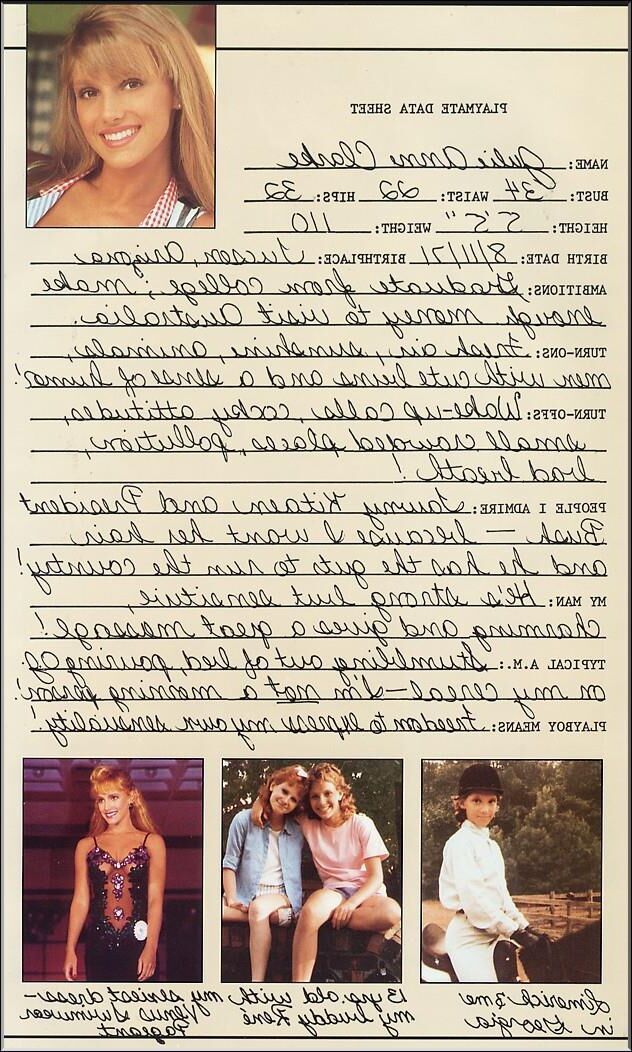 PLAYMATE DATA SHEET
NAME: Julie Anne Clarke
BUST: 34 WAIST: 22 HIPS: 32
HEIGHT: 5'5" WEIGHT: 110
BIRTH DATE: 8/11/71 BIRTHPLACE: Tucson, Arizona
AMBITIONS: Graduate from college; make
enough money to visit Australia.
TURN-ONS: Fresh air, sunshine, animals,
men with cute buns and a sense of humor!
TURN-OFFS: Wake-up calls, cocky attitudes,
small crowded places, pollution,
bad breath!
PEOPLE I ADMIRE: Tawny Kitaen and President
Bush — because I want her hair
and he has the guts to run the country!
MY MAN: He's strong but sensitive,
charming and gives a great massage!
TYPICAL A.M.: Stumbling out of bed, pouring OJ
on my cereal – I'm not a morning person!
PLAYBOY MEANS: Freedom to express my own sensuality!
Limerick & me
in Georgia
13 yrs. old with
my buddy René
my sexiest dress –
Venus Swimwear
Pageant